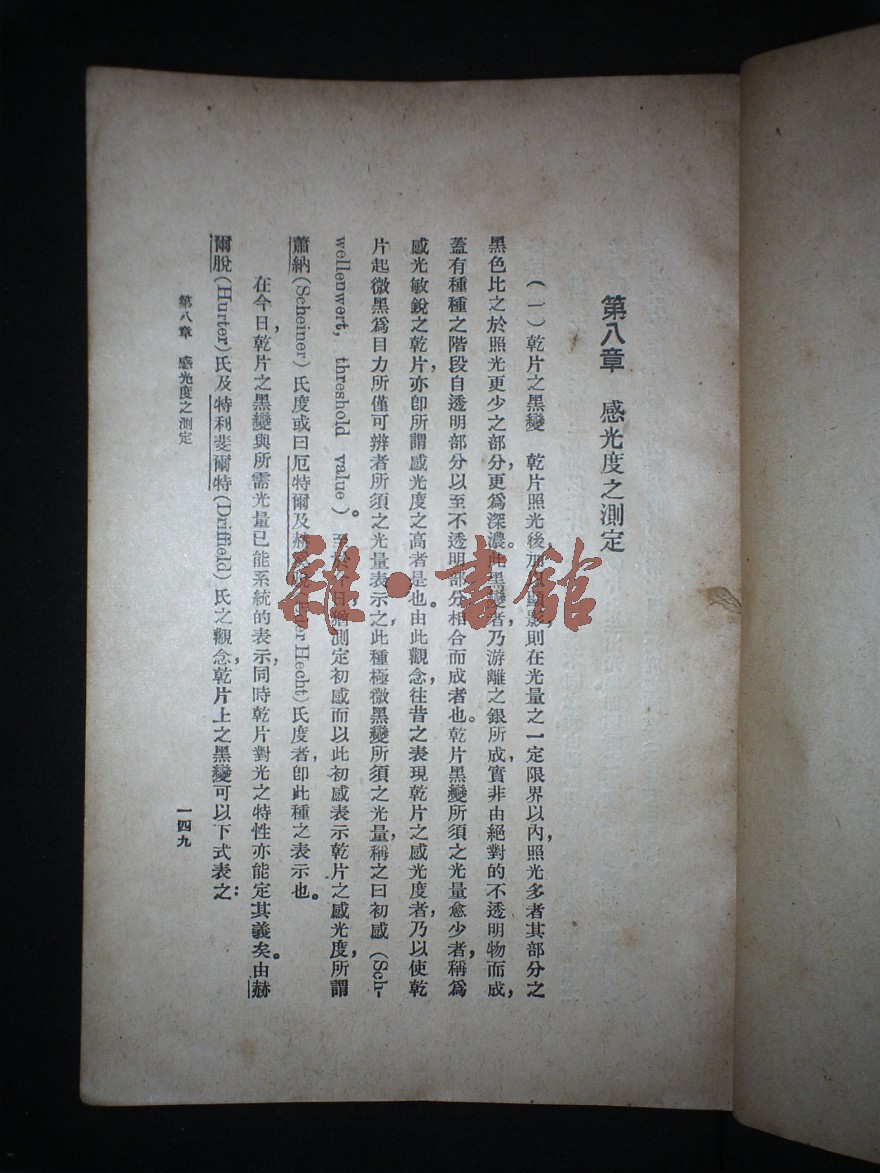 第八章　感光度之測定
（一）乾片之黑變　乾片照光後，加以顯影則在光量之一定限界以內，照光多者其部分之
黑色比之於照光更少之部分，更爲深濃。此黑變者，乃游離之銀所成，實非由絕對的不透明物而成，
蓋有種種之階段自透明部分以至不透明部分相合而成者也。乾片黑變所須之光量愈少者，稱爲
感光敏銳之乾片，亦卽所謂感光度之高者是也。由此觀念，往昔之表現乾片之感光度者，乃以使乾
片起微黑爲目力所僅可辨者所須之光量表示之，此種極微黑變所須之光量，稱之曰初感（Sch-
wellenwert, threshold value）。至於今日猶測定初感而以此初感表示乾片之感光度，所謂
蕭納(Scheiner)氏度或曰厄特爾及赫 Hecht)氏度者，卽此種之表示也。
在今日，乾片之黑變與所需光量已能系統的表示，同時乾片對光之特性亦能定其義矣。由赫
爾脫(Hurter)氏及特利斐爾特(Driffield)氏之觀念，乾片上之黑變可以下式表之：
第八章　感光度之測定
一四九
雜·書館